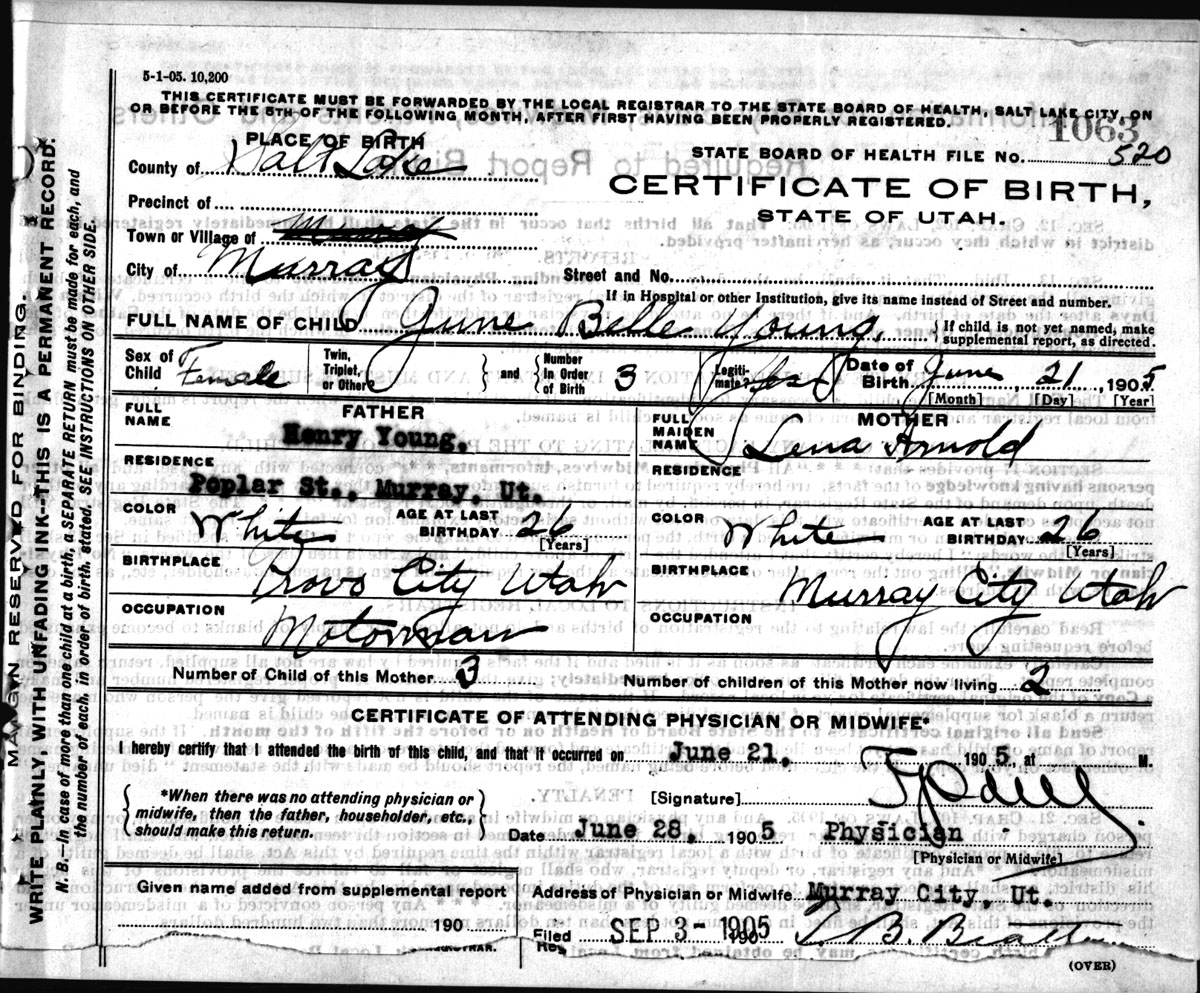 5-1-05. 10,200
THIS CERTIFICATE MUST BE FORWARDED BY THE LOCAL REGISTRAR TO THE STATE BOARD OF HEALTH, SALT LAKE CITY, ON
OR BEFORE THE 5TH OF THE FOLLOWING MONTH, AFTER FIRST HAVING BEEN PROPERLY REGISTERED.
1063
PLACE OF BIRTH
STATE BOARD OF HEALTH FILE NO. 520
County of Salt Lake
CERTIFICATE OF BIRTH,
STATE OF UTAH.
Precinct of
Town or Village of Murray
City of Murray
Street and No.
If in Hospital or other Institution, give its name instead of Street and number.
FULL NAME OF CHILD June Belle Young. {If child is not yet named, make supplemental report, as directed.
Sex of Child Female Twin, Triplet, or Other } and { Number in Order of Birth 3 Legitimate? Yes Date of Birth June 21, 1905
[Month] [Day] [Year]
FATHER
FULL NAME Henry Young.
RESIDENCE
Poplar St., Murray, Ut.
COLOR White AGE AT LAST BIRTHDAY 26
[Years]
BIRTHPLACE Provo City Utah
OCCUPATION Motorman
MOTHER
FULL MAIDEN NAME Lena Arnold
RESIDENCE
COLOR White AGE AT LAST BIRTHDAY 26
[Years]
BIRTHPLACE Murray City Utah
OCCUPATION
Number of Child of this Mother 3 Number of children of this Mother now living 2
CERTIFICATE OF ATTENDING PHYSICIAN OR MIDWIFE*
I hereby certify that I attended the birth of this child, and that it occurred on June 21. 1905, at M.
{*When there was no attending physician or midwife, then the father, householder, etc., should make this return.}
[Signature]
Date June 28. 1905 Physician
[Physician or Midwife]
Given name added from supplemental report
190
Address of Physician or Midwife Murray City, Ut.
Filed SEP 3-1905
(OVER)
MARGIN RESERVED FOR BINDING.
WRITE PLAINLY WITH UNFADING INK--THIS IS A PERMANENT RECORD.
N. B.—In case of more than one child at a birth, a SEPARATE RETURN must be made for each, and
the number of each, in order of birth, stated. SEE INSTRUCTIONS ON OTHER SIDE.